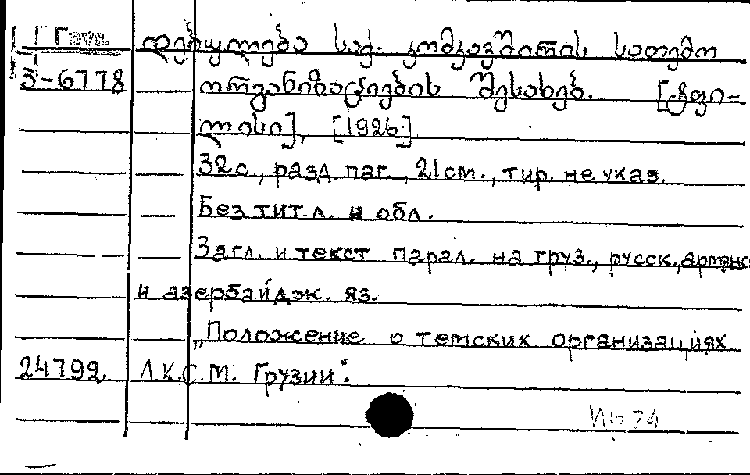 Груз. დებულება საქ. კომკავშირის სათემო
3-6778 ორგანიზაციების შესახებ. [ტფი-
ლისი], [1926].
32с., разд. паг., 21см., тир. не указ.
Без тит. л. и обл.
Загл. и текст парал. на груз., русск., армянск
и азербайдж. яз.
„Положение о темских организациях
24792. Л.К.С.М. Грузии".